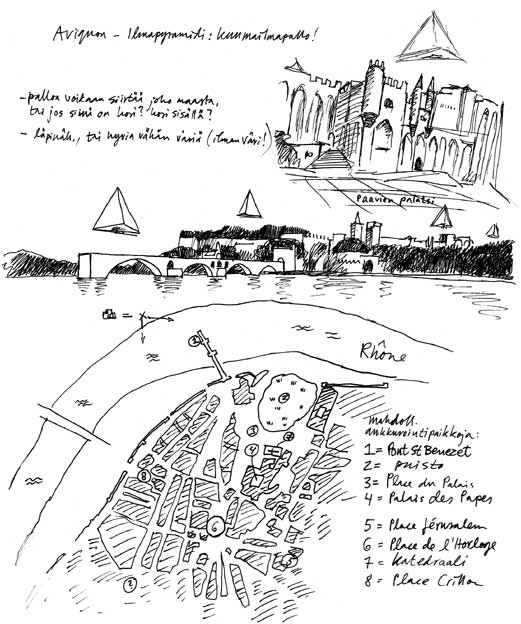 Avignon - Ilmapyramidi: kuumailmapallo!
- palloa voidaan siirtää joko maasta,
tai jos siinä on kori? kori sisällä?
- läpinäk., tai hyvin vähän väriä (ilman väri!)
Paavien palatsi
Rhône
mahdoll.
ankkurointipaikkoja:
1 = Pont St Benezet
2 = puisto
3 = Place du Palais
4 = Palais des Papes
5 = Place Jérusalem
6 = Place de l'Horloge
7 = Katedraali
8 = Place Crillon
1
2
3
7
4
8
6
5
2